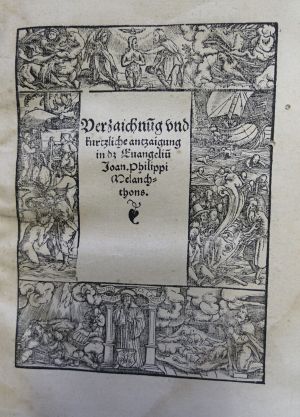 Verzaichnūg vnd
kurtzliche antzaigung
in dz Euangeliū
Joan. Philippi
Melanch-
thons.